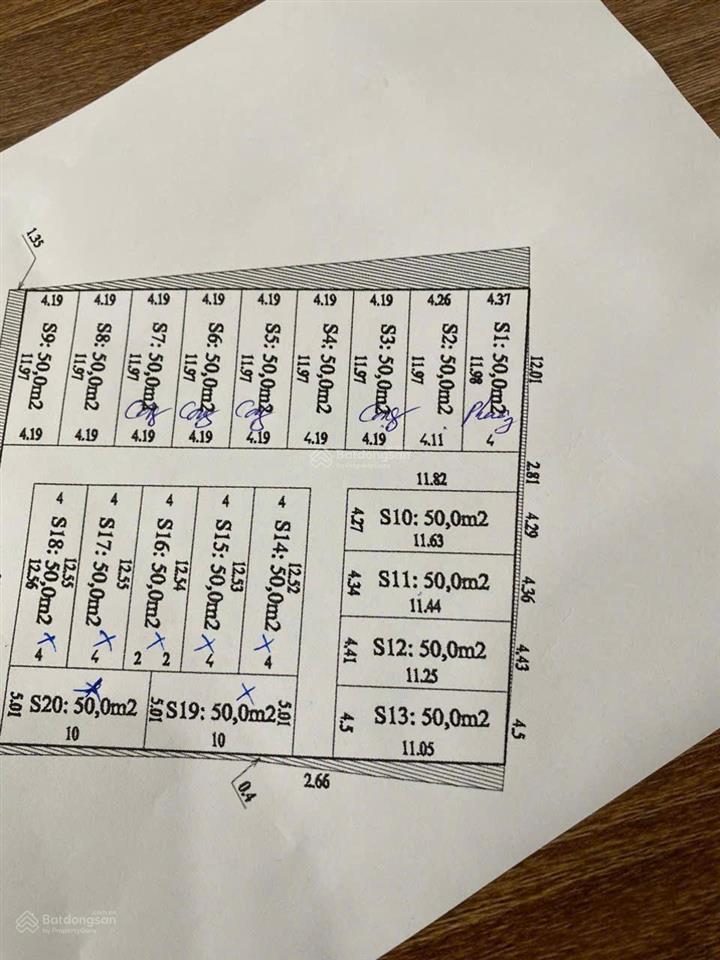 1.35
4.19 4.19 4.19 4.19 4.19 4.19 4.19 4.26 4.37
S9: 50,0m2
11.97
S8: 50,0m2
11.97
S7: 50,0m2
11.97
S6: 50,0m2
11.97
S5: 50,0m2
11.97
S4: 50,0m2
11.97
S3: 50,0m2
11.97
S2: 50,0m2
11.97
S1: 50,0m2
11.98
12.01
4.19 4.19 4.19 4.19 4.19 4.19 4.19 4.11 4
Batdongsan
by PropertyGuru
11.82
2.81
4 4 4 4 4
S18: 50,0m2
12.56
12.55
S17: 50,0m2
12.55
S16: 50,0m2
12.54
S15: 50,0m2
12.53
S14: 50,0m2
12.52
4 4 2 2 4 4
4.27
S10: 50,0m2
11.63
4.29
4.34
S11: 50,0m2
11.44
4.36
4.41
S12: 50,0m2
11.25
4.43
4.5
S13: 50,0m2
11.05
4.5
5.01
S20: 50,0m2
10
5.01
S19: 50,0m2
10
5.01
0.4
2.66
Batdongsan
.com.vn
by PropertyGuru